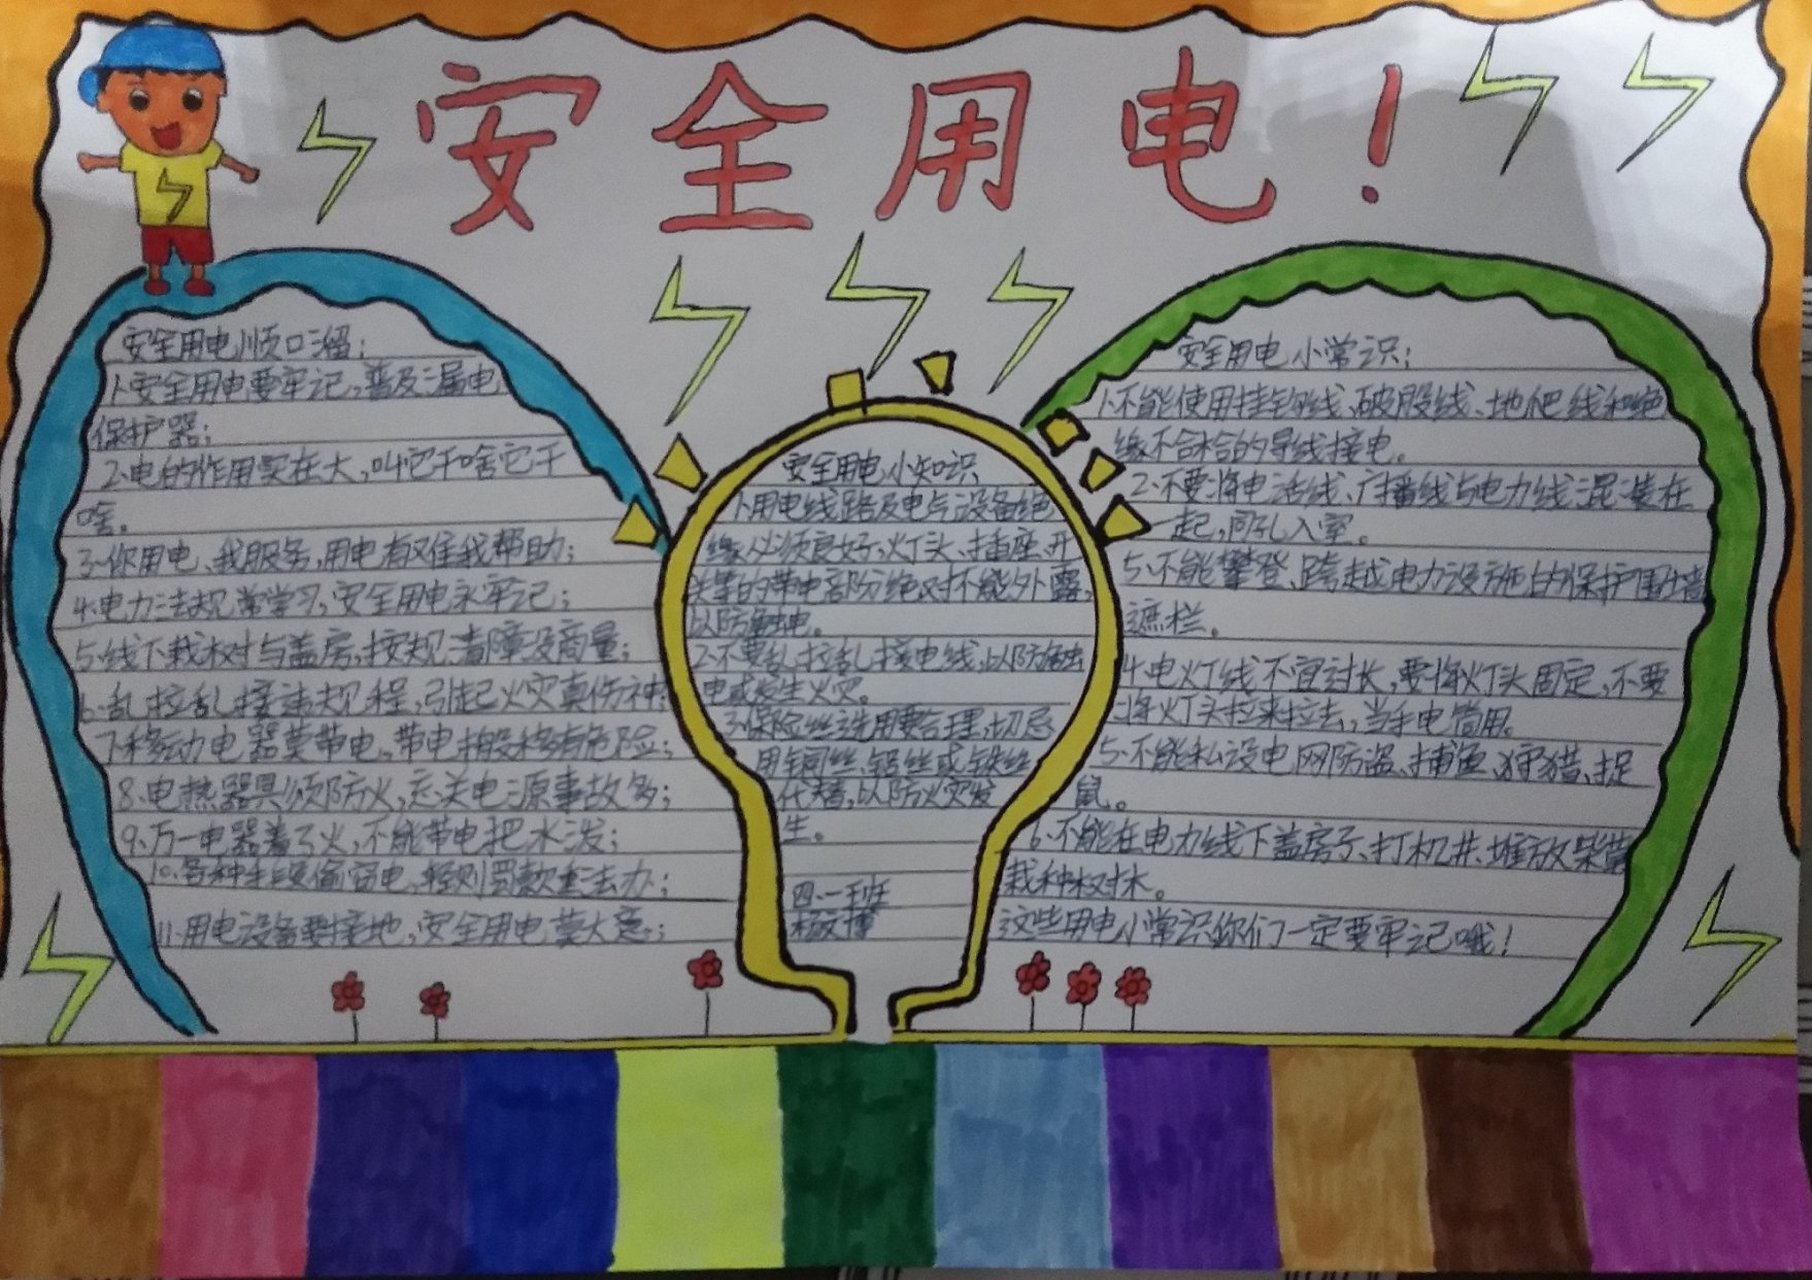 安全用电！
安全用电顺口溜：
1、安全用电要牢记，普及漏电
保护器；
2、电的作用实在大，叫它干啥它干
啥。
3、你用电、我服务，用电有难我帮助；
4、电力法规常学习，安全用电永牢记；
5、线下栽树与盖房，按规清障没商量；
6、乱拉乱接违规程，引起火灾真伤神；
7、移动电器莫带电，带电搬移有危险；
8、电热器具须防火，忘关电源事故多；
9、万一电器着了火，不能带电把水泼；
10、各种手段偷窃电，轻则罚款重法办；
11、用电设备要接地，安全用电莫大意；
安全用电小知识
1、用电线路及电气设备绝
缘必须良好，灯头、插座、开
关等的带电部分绝对不能外露，
以防触电。
2、不要乱拉乱接电线，以防触
电或发生火灾。
3、保险丝选用要合理，切忌
用铜丝、铝丝或铁丝
代替，以防火灾发
生。
四、一班
杨文博
安全用电小常识：
1、不能使用挂钩线、破股线、地爬线和绝
缘不合格的导线接电。
2、不要将电话线、广播线与电力线混装在
一起，同孔入室。
5、不能攀登、跨越电力设施的保护围墙
遮栏。
4、电灯线不宜过长，要将灯头固定，不要
将灯头拉来拉去，当手电筒用。
5、不能私设电网防盗、捕鱼、狩猎、捉
鼠。
6、不能在电力线下盖房子、打机井、堆放柴草
栽种树木。
这些用电小常识你们一定要牢记哦！